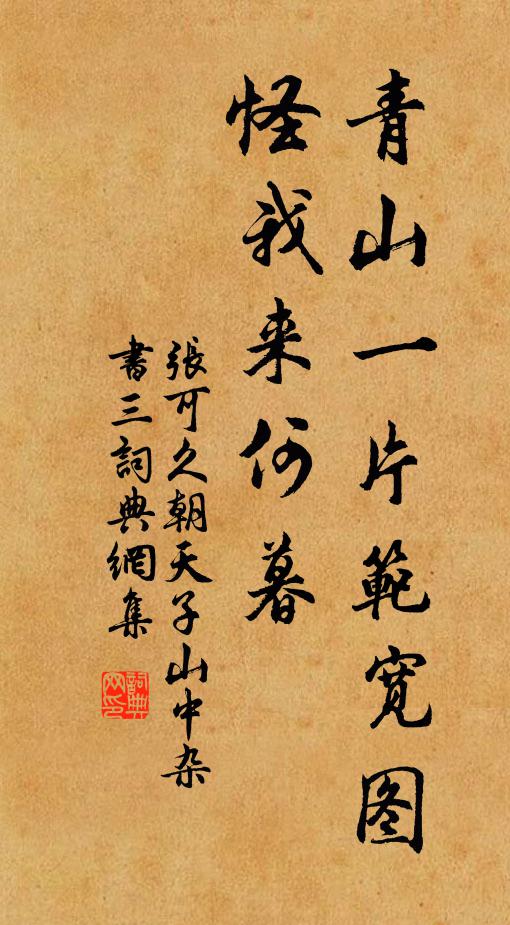 青山一片範寬图
怪我来何暮
張可久朝天子山中杂
書三詞典網集
詞典网印